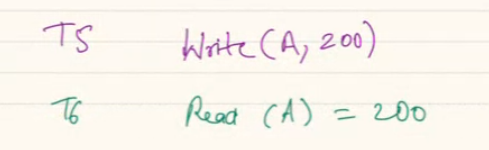 T5 Write (A, 200)
T6 Read (A) = 200